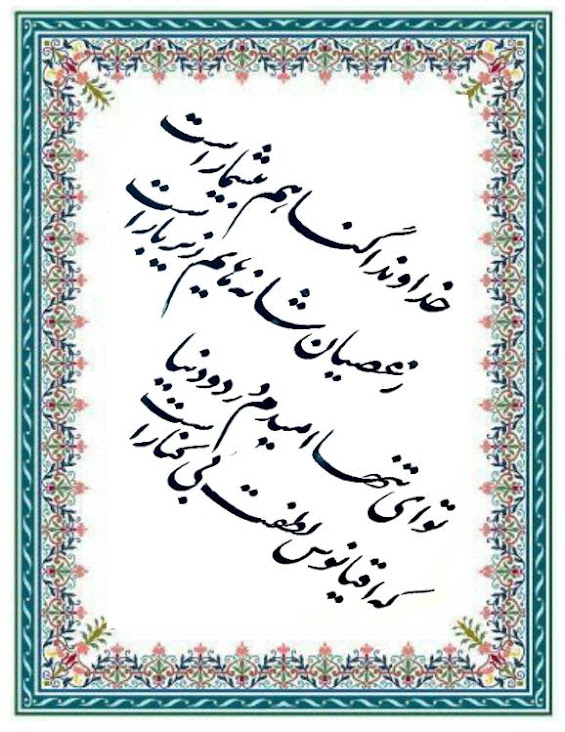 خداوندا گناهم بیشمار است
ز عصیان شانه هایم زیر بار است
تو ای تنها امیدم در دو دنیا
که اقیانوس لطفت بی کنار است